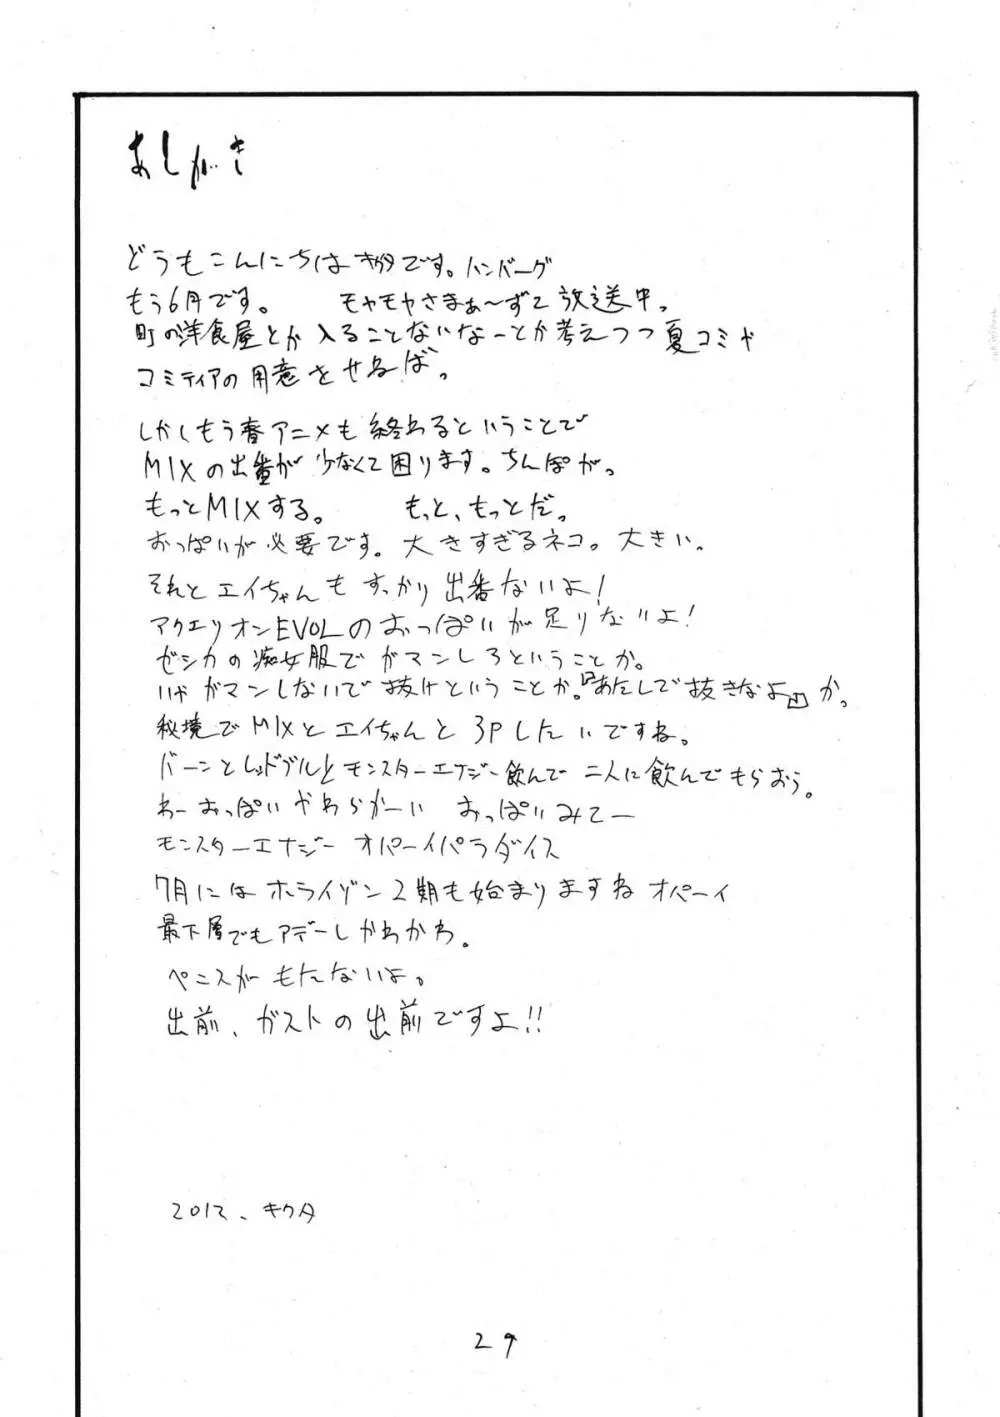 あしがき
どうもこんにちはキクタです。ハンバーグ
もう6月です。 モヤモヤさまぁ〜ず2 放送中。
町の洋食屋とか入ることないなーとか考えつつ夏コミや
コミティアの用意をせねば。
しかしもう春アニメも終わるということで
MIXの出番が少なくて困ります。ちんぽが。
もっとMIXする。 もっと、もっとだ。
おっぱいが必要です。大きすぎるネコ。大きい。
それとエイちゃんもすっかり出番ないよ!
アクエリオンEVOLのおっぱいが足りないよ!
ゼシカの痴女服でガマンしろということか。
いやガマンしないで抜けということか。『あたしで抜きなよ』か。
秘境でMIXとエイちゃんと3Pしたいですね。
バーンとレッドブルとモンスターエナジー飲んで二人に飲んでもらおう。
わーおっぱいやわらかーい おっぱいみてー
モンスターエナジー オパーイパラダイス
7月にはホライゾン2期も始まりますねオパーイ
最下層でもアデーレかわかわ。
ペニスがもたないよ。
出前、ガストの出前ですよ!!
2012、キクタ
29